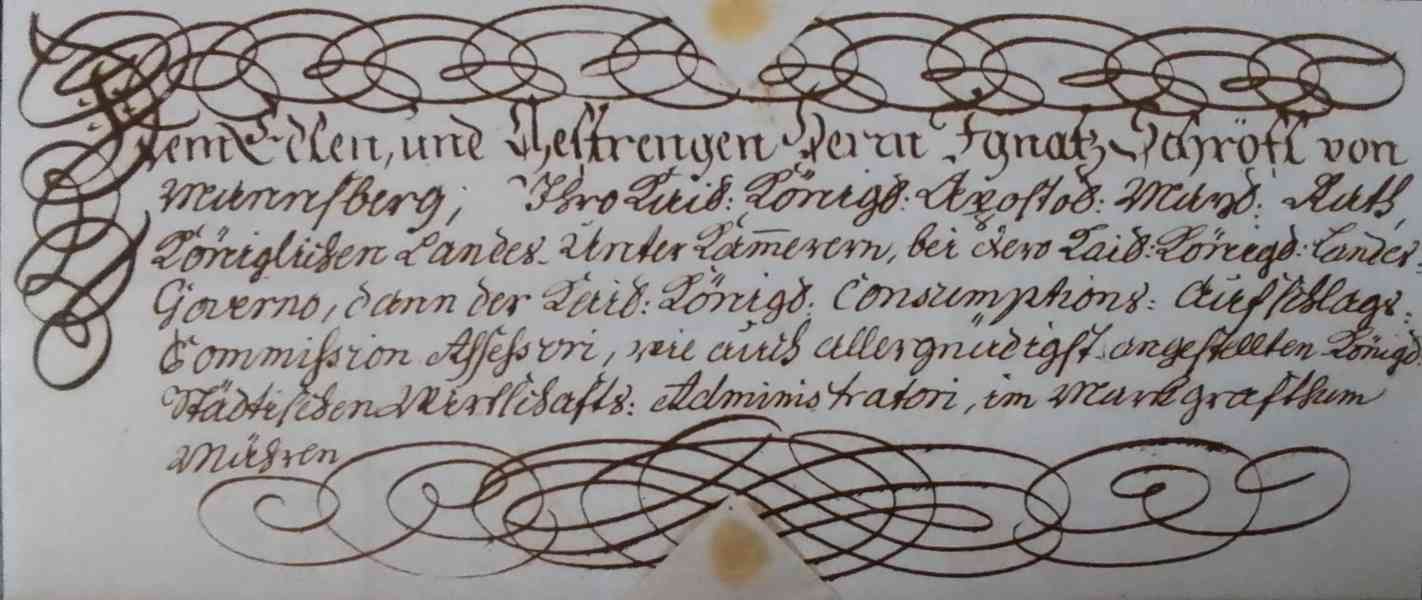 Dem Edlen, und Gestrengen Herrn Ignatz Schröfl von
Mannsberg, Ihro Kais: Königl: Apostol: Mayst: Rath,
Königlichen Landes-Unter Kam̅erern, bei dero Kais: Königl: Landes-
Governo, dann der Kais: Königl: Consumptions: Aufschlags:
Commission Assessori, wie auch allergnädigst angestellten Königl:
Städtischen Wirtschafts: Administratori, im Markgrafthum
Mähren